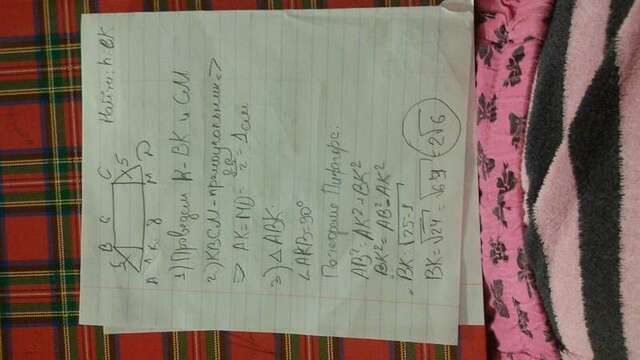 B 6 C Найти: h-BK
5 5
A 1 K 8 M D
1) Проведем h-BK и CM
2) KBCM-прямоугольник=>
=> AK=MD= =1см
3) △ABK:
∠AKB=90°
По теореме Пифагора:
AB²=AK²+BK²
BK²=AB²-AK²
BK=√25-1
BK=√24=√6·4=2√6